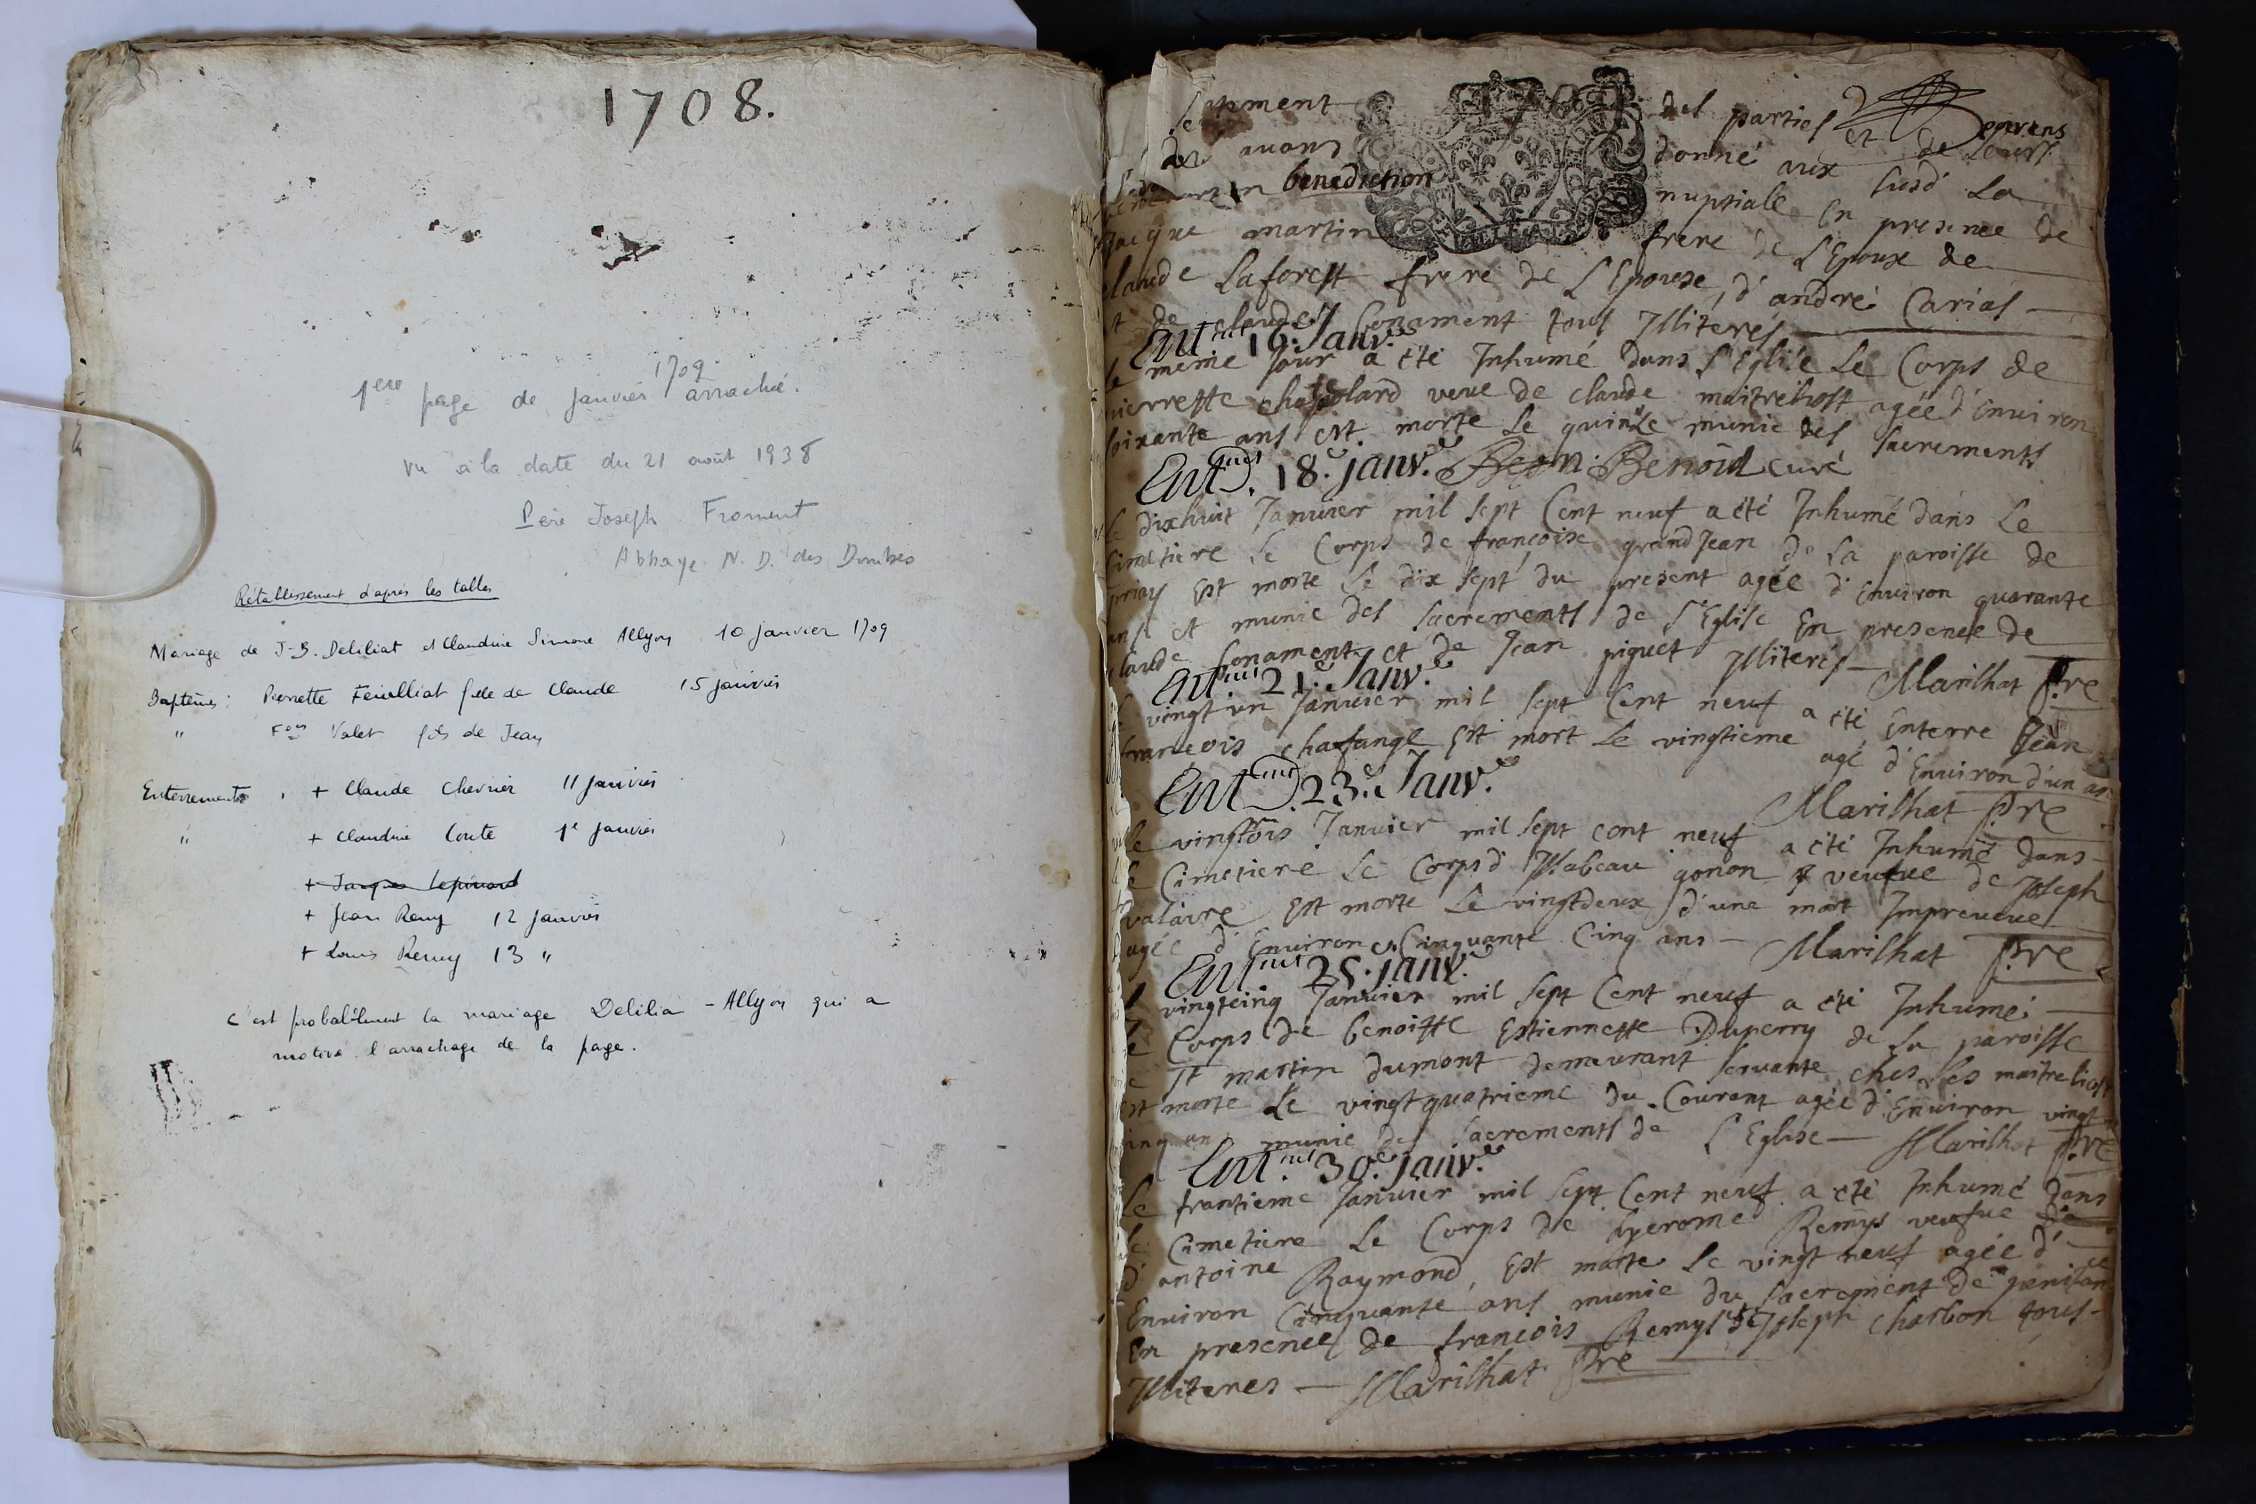 1708.
1ere page de janvier 1709 arrachée.
vu à la date du 21 août 1938
Père Joseph Froment
Abbaye N. D. des Dombes
Rétablissement d'après les tables
Mariage de J-B. Deliliat et Claudine Simone Allyon 10 janvier 1709
Baptêmes : Pierrette Feuilliat fille de Claude 15 janvier
" Fois Valet fils de Jean
Enterrements + Claude Chevrier 11 janvier
" + Claudine Coute 1e janvier
+ Jacques
+ Jean Remy 12 janvier
+ Louis Remy 13 "
C'est probablement la mariage Delilia - Allyon qui a
motivé l'arrachage de la page.
des parties et de leurs
avons donné aux susd La
benediction nuptiale En presence de
Jacque martin frere de L'Epoux de
Claude Laforest frere de L'Epouse, d'andré Carias
et de claude fonament tous Illiterés
Entmt 16e Janv.e
Le meme Jour a été Inhumé dans l'Eglise Le Corps de
pierrette veue de claude maitreliost agée d'Environ
soixante ans est morte Le quinze munie des sacrements
Benoid curé
Entmt. 18e janv.e
Le dixhuit Janvier mil sept Cent neuf a été Inhumé dans Le
Cimetiere Le Corps de françoise grandJean de La paroisse de
priay Est morte Le dix sept du present agée d'Environ quarante
ans et munie des sacrements de L'Eglise En presence de
Claude fonament et de Jean piquet Illiterés — Marilhat pre
Entmt 21e Janv.e
Le vingt un Janvier mil sept Cent neuf a été Enterre Jean
francois chafange Est mort Le vingtieme agé d'Environ d'un an
Marilhat pre
Entmt. 23e Janv.e
Le vingtrois Janvier mil sept cent neuf a été Inhumé dans
Le Cimetiere Le Corps d'Isabeau gonon veufve de Joseph
valaire Est morte Le vingtdeux d'une mort Impreveue
agée d'Environ Cinquante Cinq ans — Marilhat pre
Entmt 25e janv.e
Le vingtcinq Janvier mil sept Cent neuf a été Inhumé
Le Corps de benoitte Estiennette Duperry de La paroisse
de st martin dumont demeurant servante chés Les maitreliost
Est morte Le vingtquatrieme du Courant agée d'Environ vingt
cinq ans munie des sacrements de L'Eglise — Marilhat pre
Entmt. 30e janv.e
Le trantieme Janvier mil sept Cent neuf a été Inhumé dans
Le Cimetiere Le Corps de hyerome Remys veufue
d'antoine Raymond, Est morte Le vingt neuf agée d'
Environ Cinquante ans munie du sacrement de penitance
En presence de francois Remys et Joseph Charbon tous
Illiteres — Marilhat pre